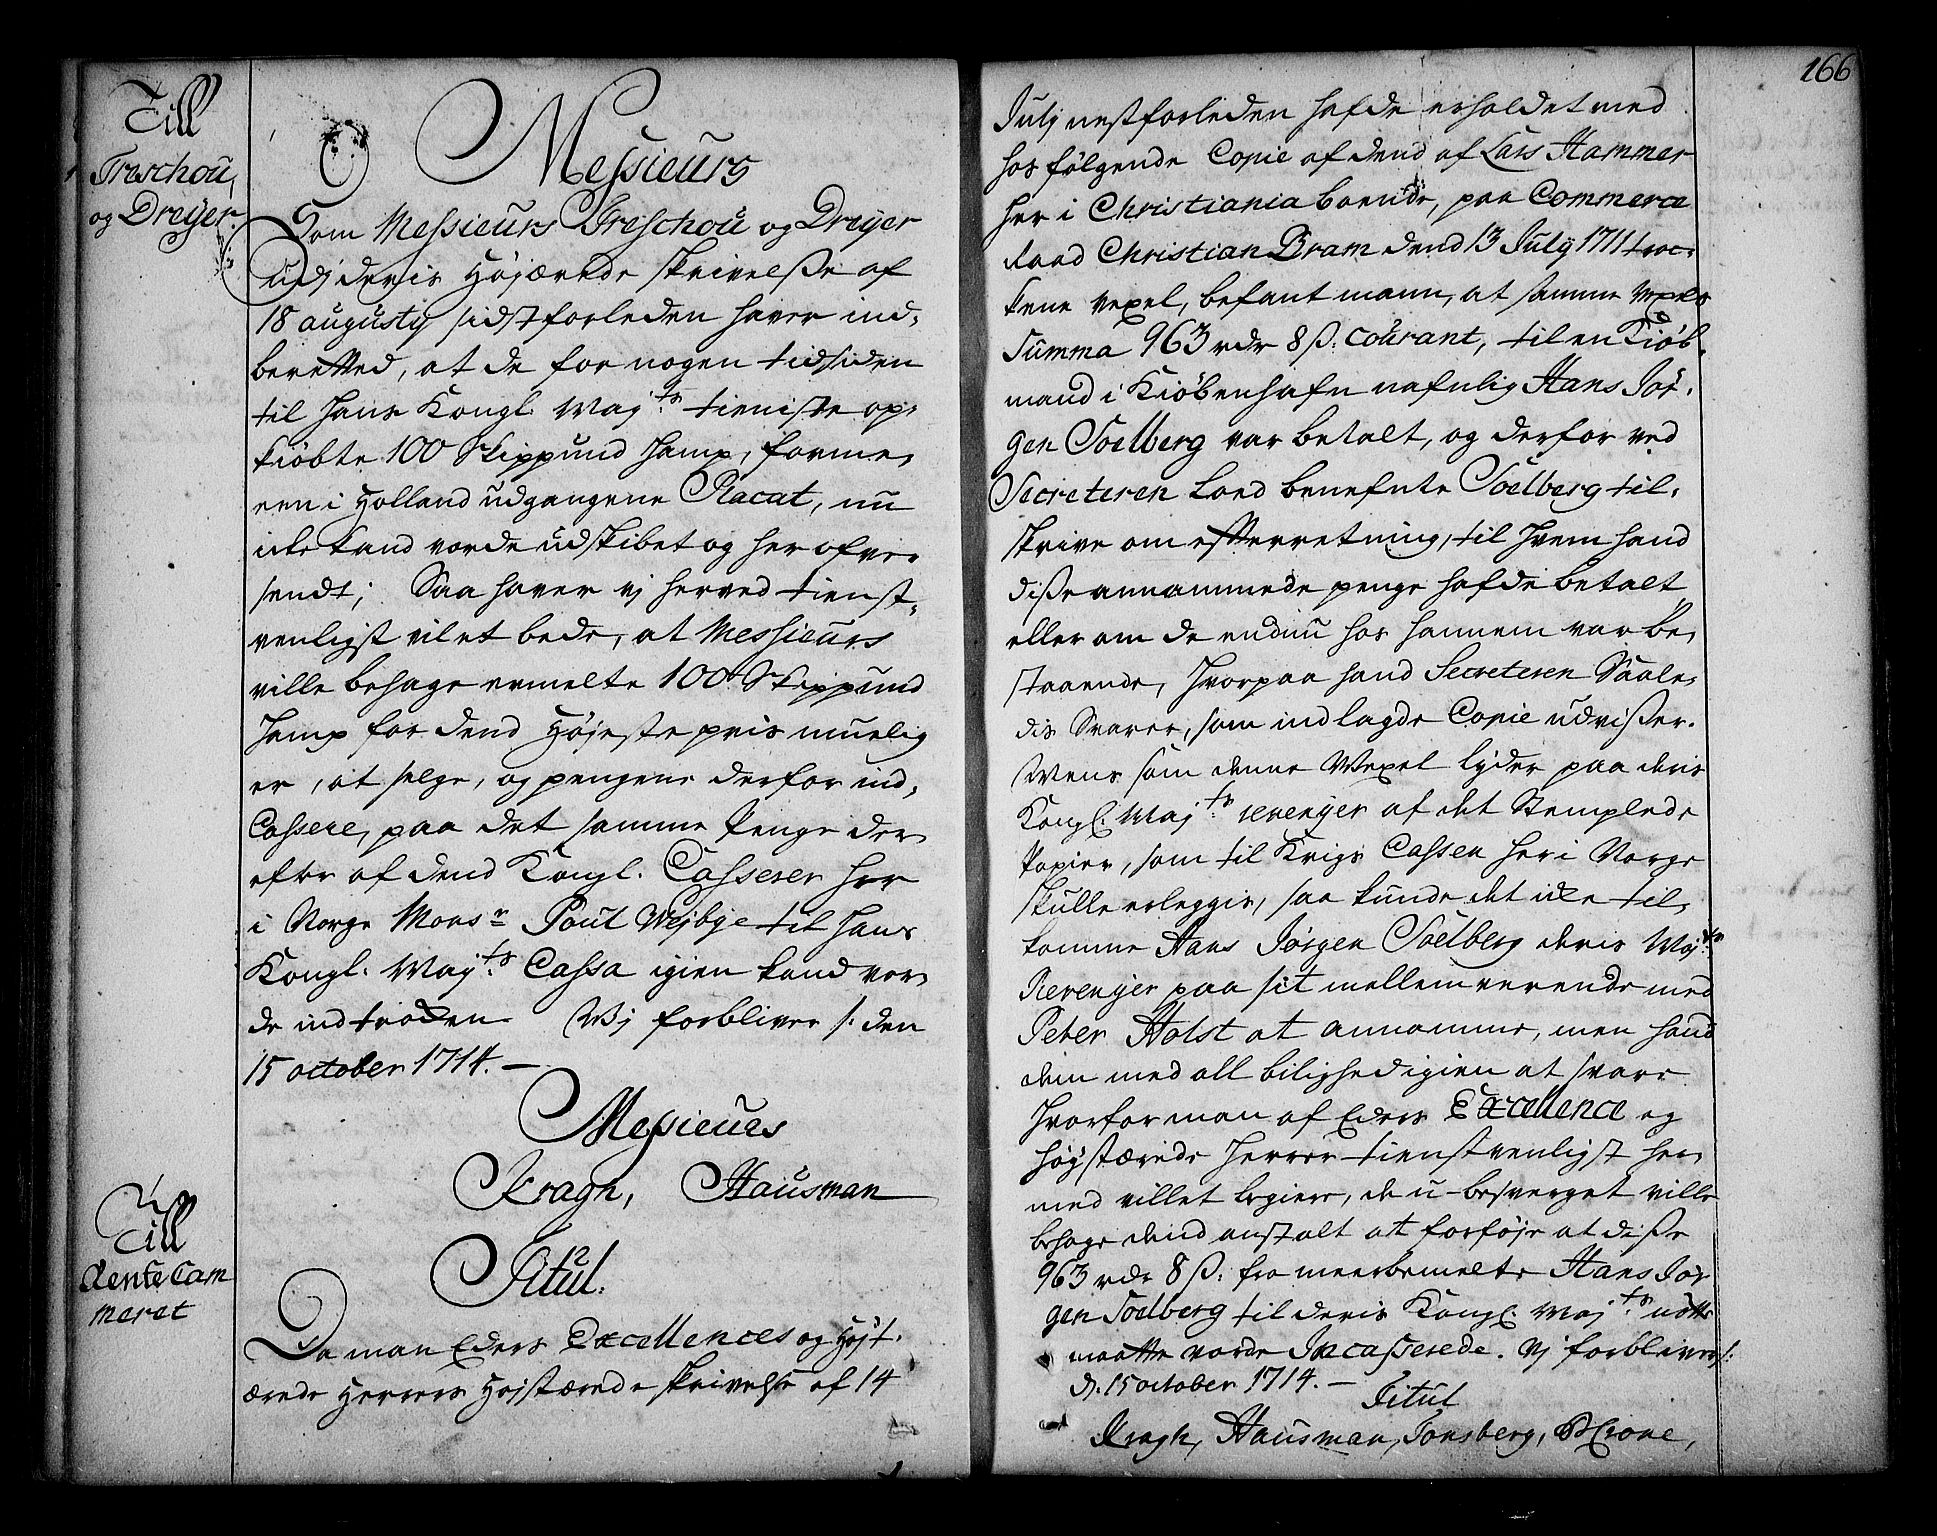 Till
Treschou,
og Dreyer.
Messieurs
Som Messieurs Treschou og Dreyer
udj deris Højærede skrivelße af
18 augustij sidstforleden haver ind,
beretted, at de for nogen tid siden
til Hans Kongl. Maj.ts tieniste op,
kiøbte 100 Skippund Hamp, forme,
en i Holland udgangene Placat, nu
icke kand vorde udskibet og her ofver
sendt; Saa haver vj herved tienst,
venligst vilet bede, at Messieurs
ville behage ermelte 100 Skippund
Hamp for dend Højeste pris muelig
er, at selge, og pengene derfor ind,
Cassere, paa det samme Penge der,
efter af dend Kongl. Casserer her
i Norge Mons.r Poul Wejbye til Hans
Kongl. Maj.ts Cassa igien kand vor,
de ind
Wj forbliver /: den
15 october 1714. —
Messieurs
Kragh, Hausman
Till
Rente Cam
meret
Titul.
Da man Eders Excellences og Højt,
ærede Herrers Højstærede skrivelse af 14
166
Julj nestforleden hafde erholdet med
hosfølgende Copie af dend af Lars Hammer
her i Christiania boende, paa Commerce
Raad Christian Bram dend 13 July 1711 troc,
kene vexel, befant mann, at samme Vexels
Summa 963 rdr 8 ß. courant, til en Kiøb,
mand i Kiøbenhafn nafnlig Hans Jør,
gen Soelberg var betalt, og derfor ved
Secreteren Lod benefnte Soelberg til,
skrive om efterretning, til hvem hand
disse annammede penge hafde betalt
eller om de endnu hos hannem var be,
staaende, Hvorpaa hand Secreteren Saale,
dis Svarer, som indlagde Copie udvißer.
Mens som denne Wexel lyder paa deris
Kongl. Maj.ts revenyer af det Stemplede
Papier, som til Krigs Cassen her i Norge
skulle erleggis, saa kunde det icke til,
komme Hans Jørgen Soelberg deris Maj.ts
Revenyer paa sit mellemverende med
Peter Holst at annamme, men hand
dem med all bilighed igien at svare
Hvorfor man af Eders Excellence og
Højstærede Herrer tienstvenligst her,
med villet begiere, de u-besverget ville
behage dend anstalt at forføje at diße
963 rdr 8 ß. fra meerbemelte Hans Jør
gen Soelberg til deris Kongl. Maj.ts nøtte
maatte vorde Incasserede. Vj forbliver /:
d. 15 october 1714. —
Titul
Kragh, Hausman, Tonsberg,